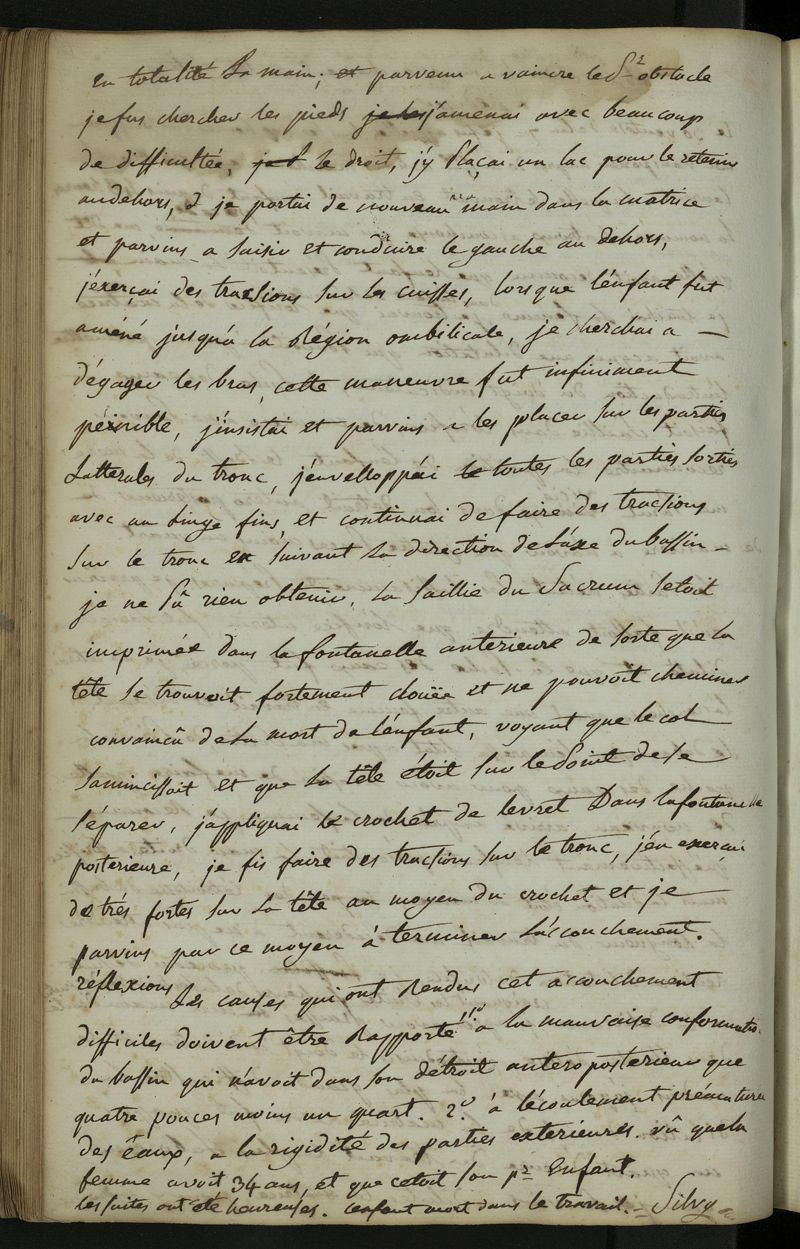 en totalité La main; et parvenu a vaincre le S.2 obstacle
je fus chercher les pieds je les j'amenai avec beaucoup
de difficultée, je l' le droit, j'y Plaçai un lac pour le retenir
audehors, & je portai de nouveau main dans la matrice
et parvins a saisir et conduire le gauche au dehors,
j'éxerçai des tractions sur les cuisses, lorsque l'énfant fut
améné jusqu'a la Région ombilicale, je cherchai a —
dégager les bras, cette maneuvre fut infiniment
péinible, j'insistai et parvins a les placer sur les parties
Latterales du tronc, j'énvelloppéi le toutes les parties sorties
avec un Linge fins, et continuai de faire des tractions
sur le tronc en suivant La direction de L'áxe du bassin —
je ne Pû rien obtenir, La saillie du Sacrum setoit
imprimée dans la fontanelle anterieure de sorte que La
tête se trouvoit fortement clouëe et ne pouvoit cheminer
convaincû de La mort de L'énfant, voyant que le col
s'amincissoit et que La tête étoit sur le Point de se
séparer, j'appliquai le crochet de levret Dans la fontanelle
posterieure, je fis faire des tractions sur le tronc, j'én exerçai
de trés fortes sur La tête au moyen du crochet et je
parvins par ce moyen á terminer L'áccouchement.
réflexions Les causes qui ont Rendus cet accouchement
difficiles doivent être Rapporté 1.º a la mauvaise conformatio.
du bassin qui n'avoit dans son détroit anteroposterieur que
quatre pouces moins un quart. 2.º á lécoulement prématuré
des éaux, a la rigidité des parties exterieures. vû que la
femme avoit 34 ans, et que cetoit son pr. Enfant.
les suites ont été heureuses. l'enfant mort dans le travail. — Silvy =